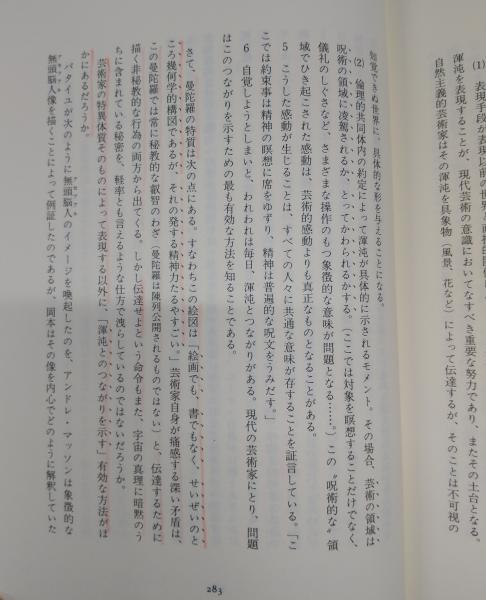 (1) 表現手段が表現以前の世界と直接
渾沌を表現することが、現代芸術の意識においてなすべき重要な努力であり、またその土台となる。
自然主義的芸術家はその渾沌を具象物(風景、花など)によって伝達するが、そのことは不可視の
知覚できぬ世界に、具体的な形を与えることになる。
(2) 倫理的共同体内の約定によって渾沌が具体的に示されるモメント。その場合、芸術の領域は
呪術の領域に凌駕されるか、とってかわられるかする。(ここでは対象を瞑想することだけでなく、
儀礼のしぐさなど、さまざまな操作のもつ象徴的な意味が問題となる……。)この〝呪術的な〟領
域でひき起こされた感動は、芸術的感動よりも真正なものとなることがある。
5 こうした感動が生じることは、すべての人々に共通な意味が存することを証言している。「こ
こでは約束事は精神の瞑想に席をゆずり、精神は普遍的な呪文をうみだす。」
6 自覚しようとしまいと、われわれは毎日、渾沌とつながりがある。現代の芸術家にとり、問題
はこのつながりを示すための最も有効な方法を知ることである。
さて、曼陀羅の特質は次の点にある。すなわちこの絵図は「絵画でも、書でもなく、せいぜいのと
ころ幾何学的構図であるが、それの発する精神力たるやすごい。」芸術家自身が痛感する深い矛盾は、
この曼陀羅では常に秘教的な叡智のわざ(曼陀羅は陳列公開されるものではない)と、伝達するために
描く非秘教的な行為の両方から出てくる。しかし伝達せよという命令もまた、宇宙の真理に暗黙のう
ちに含まれている秘密を、軽率とも言えるような仕方で洩らしているのではないだろうか。
芸術家の特異体質そのものによって表現する以外に、「渾沌とのつながりを示す」有効な方法がほ
かにあるだろうか。
バタイユが次のように無頭脳人のイメージを喚起したのを、アンドレ・マッソンは象徴的な
無頭脳人像を描くことによって例証したのであるが、岡本はその像を内心でどのように解釈していた
283